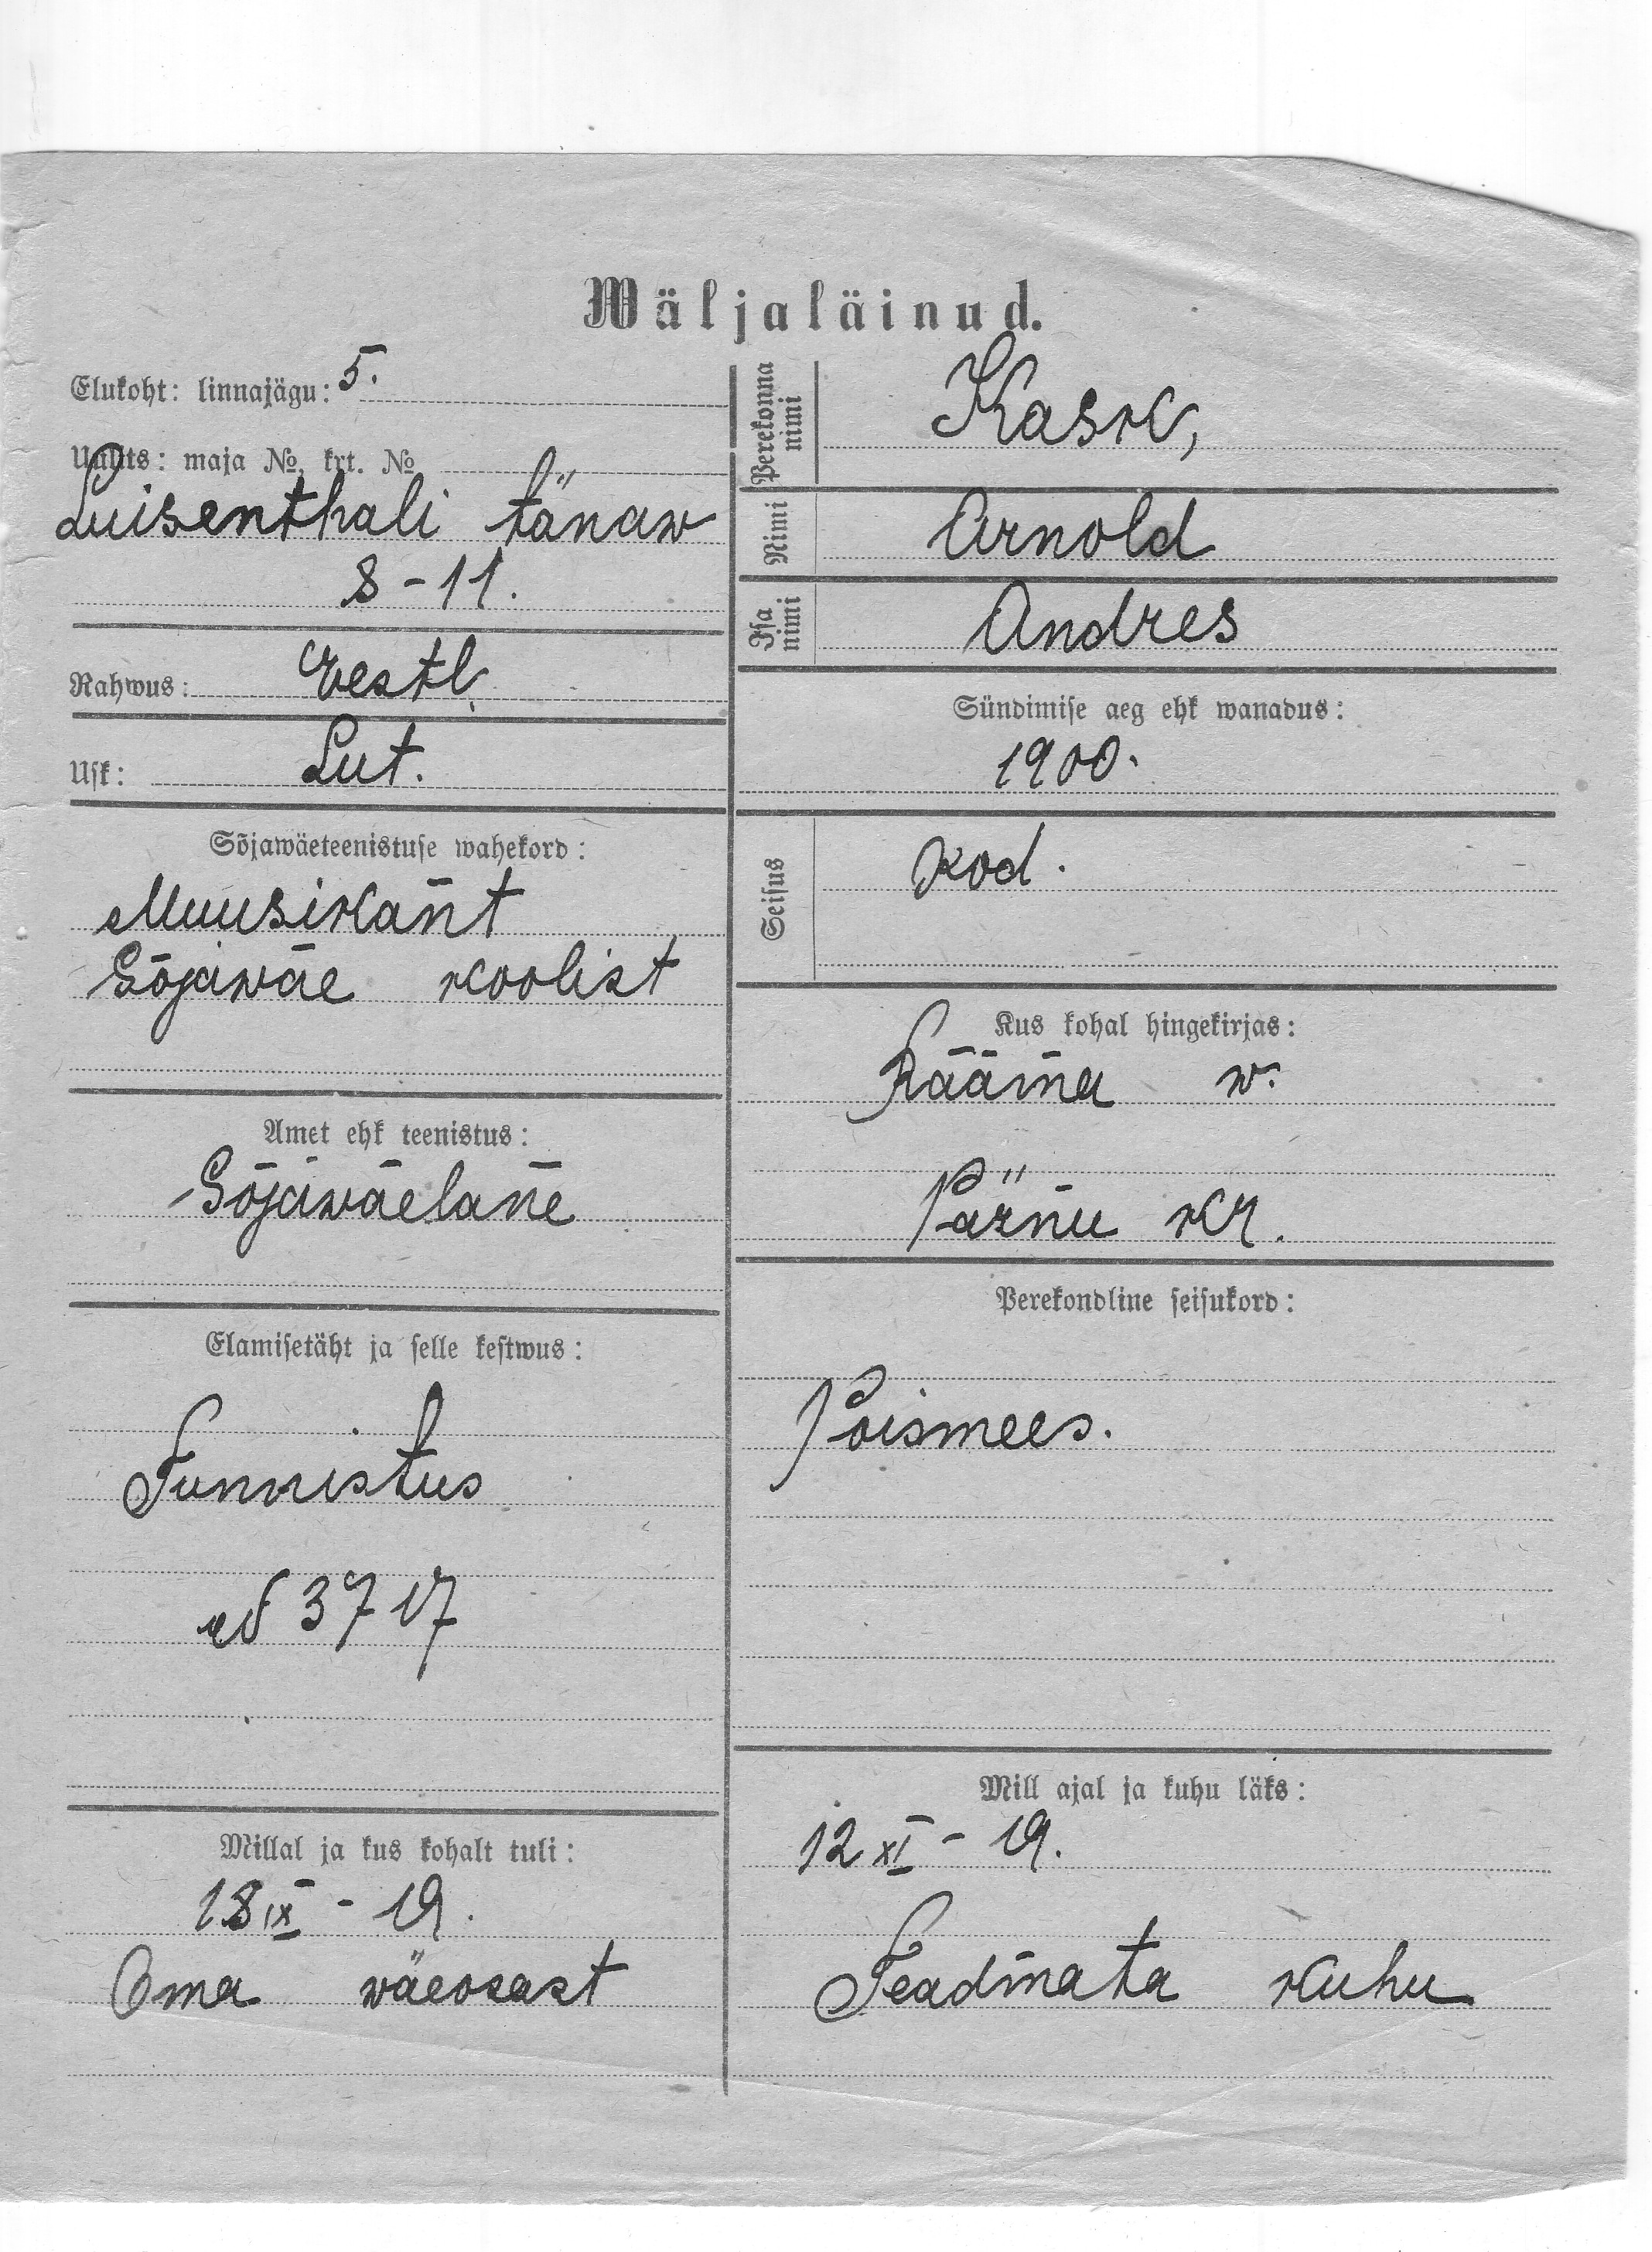 Wäljaläinud.
Elukoht: linnajägu: 5.
Uulits: maja № krt. №
Luisenthali tänaw
8-11.
Rahwus: Eestl.
Usk: Lut.
Sõjawäeteenistuse wahekord:
Muusikant
Sõjawäe koolist
Amet ehk teenistus:
Sõjawäelane
Elamisetäht ja selle kestwus:
Tunnistus
№ 3717
Millal ja kus kohalt tuli:
18 IX - 19.
Oma wäeosast
Perekonna nimi Kask,
Nimi Arnold
Isa nimi Andres
Sündimise aeg ehk wanadus:
1900.
Seisus kod.
Kus kohal hingekirjas:
Rääma w.
Pärnu kr.
Perekondline seisukord:
Poismees.
Mill ajal ja kuhu läks:
12 XI - 19.
Teadmata kuhu